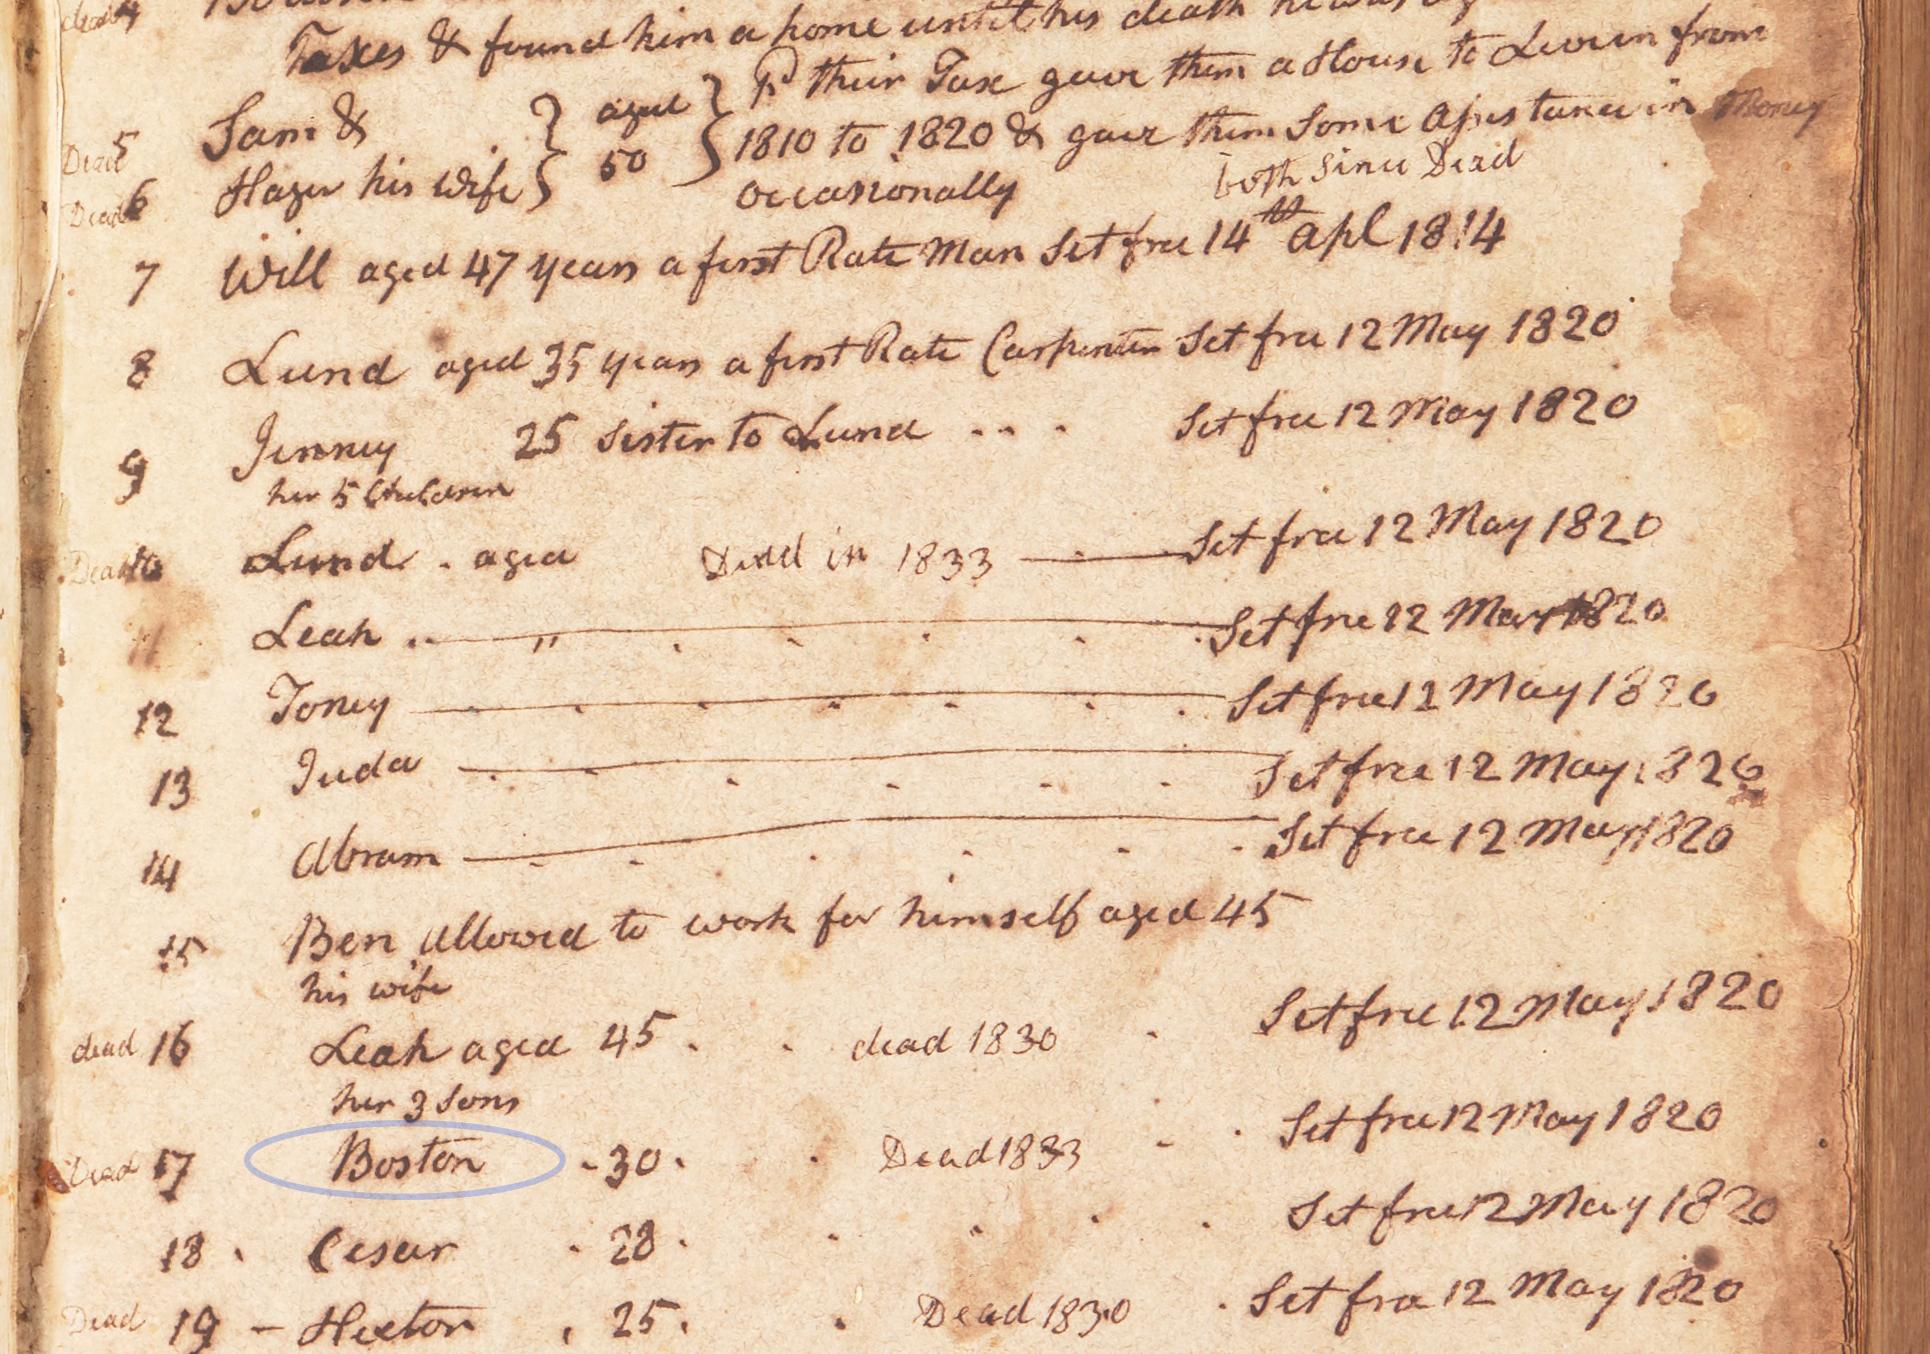 Taxes & found him a home until his death he was
Dead 5 Sam & } aged } pd their Tax gave them a House to Live in from
Dead 6 Hager his wife } 50 } 1810 to 1820 & gave them Some Assistance in Money
occasionally both Since Dead
7 Will aged 47 years a first Rate Man Set free 14th Apl 1814
8 Lund aged 35 years a first Rate Carpenter Set free 12 May 1820
9 Jenney 25 Sister to Lund . . . Set free 12 May 1820
her 5 Children
Dead 10 Lund . aged Dead in 1833 Set free 12 May 1820
11 Leah " Set free 12 May 1820
12 Toney Set free 12 May 1820
13 Juda Set free 12 May 1820
14 Abram Set free 12 May 1820
15 Ben allowed to work for himself aged 45
his wife
dead 16 Leah aged 45 . . dead 1830 . Set free 12 May 1820
her 3 Sons
Dead 17 Boston - 30 . . Dead 1833 - . Set free 12 May 1820
18 . Cesar . 28 . . . . . Set free 12 May 1820
Dead 19 - Hexton . 25 . . Dead 1830 . Set free 12 May 1820